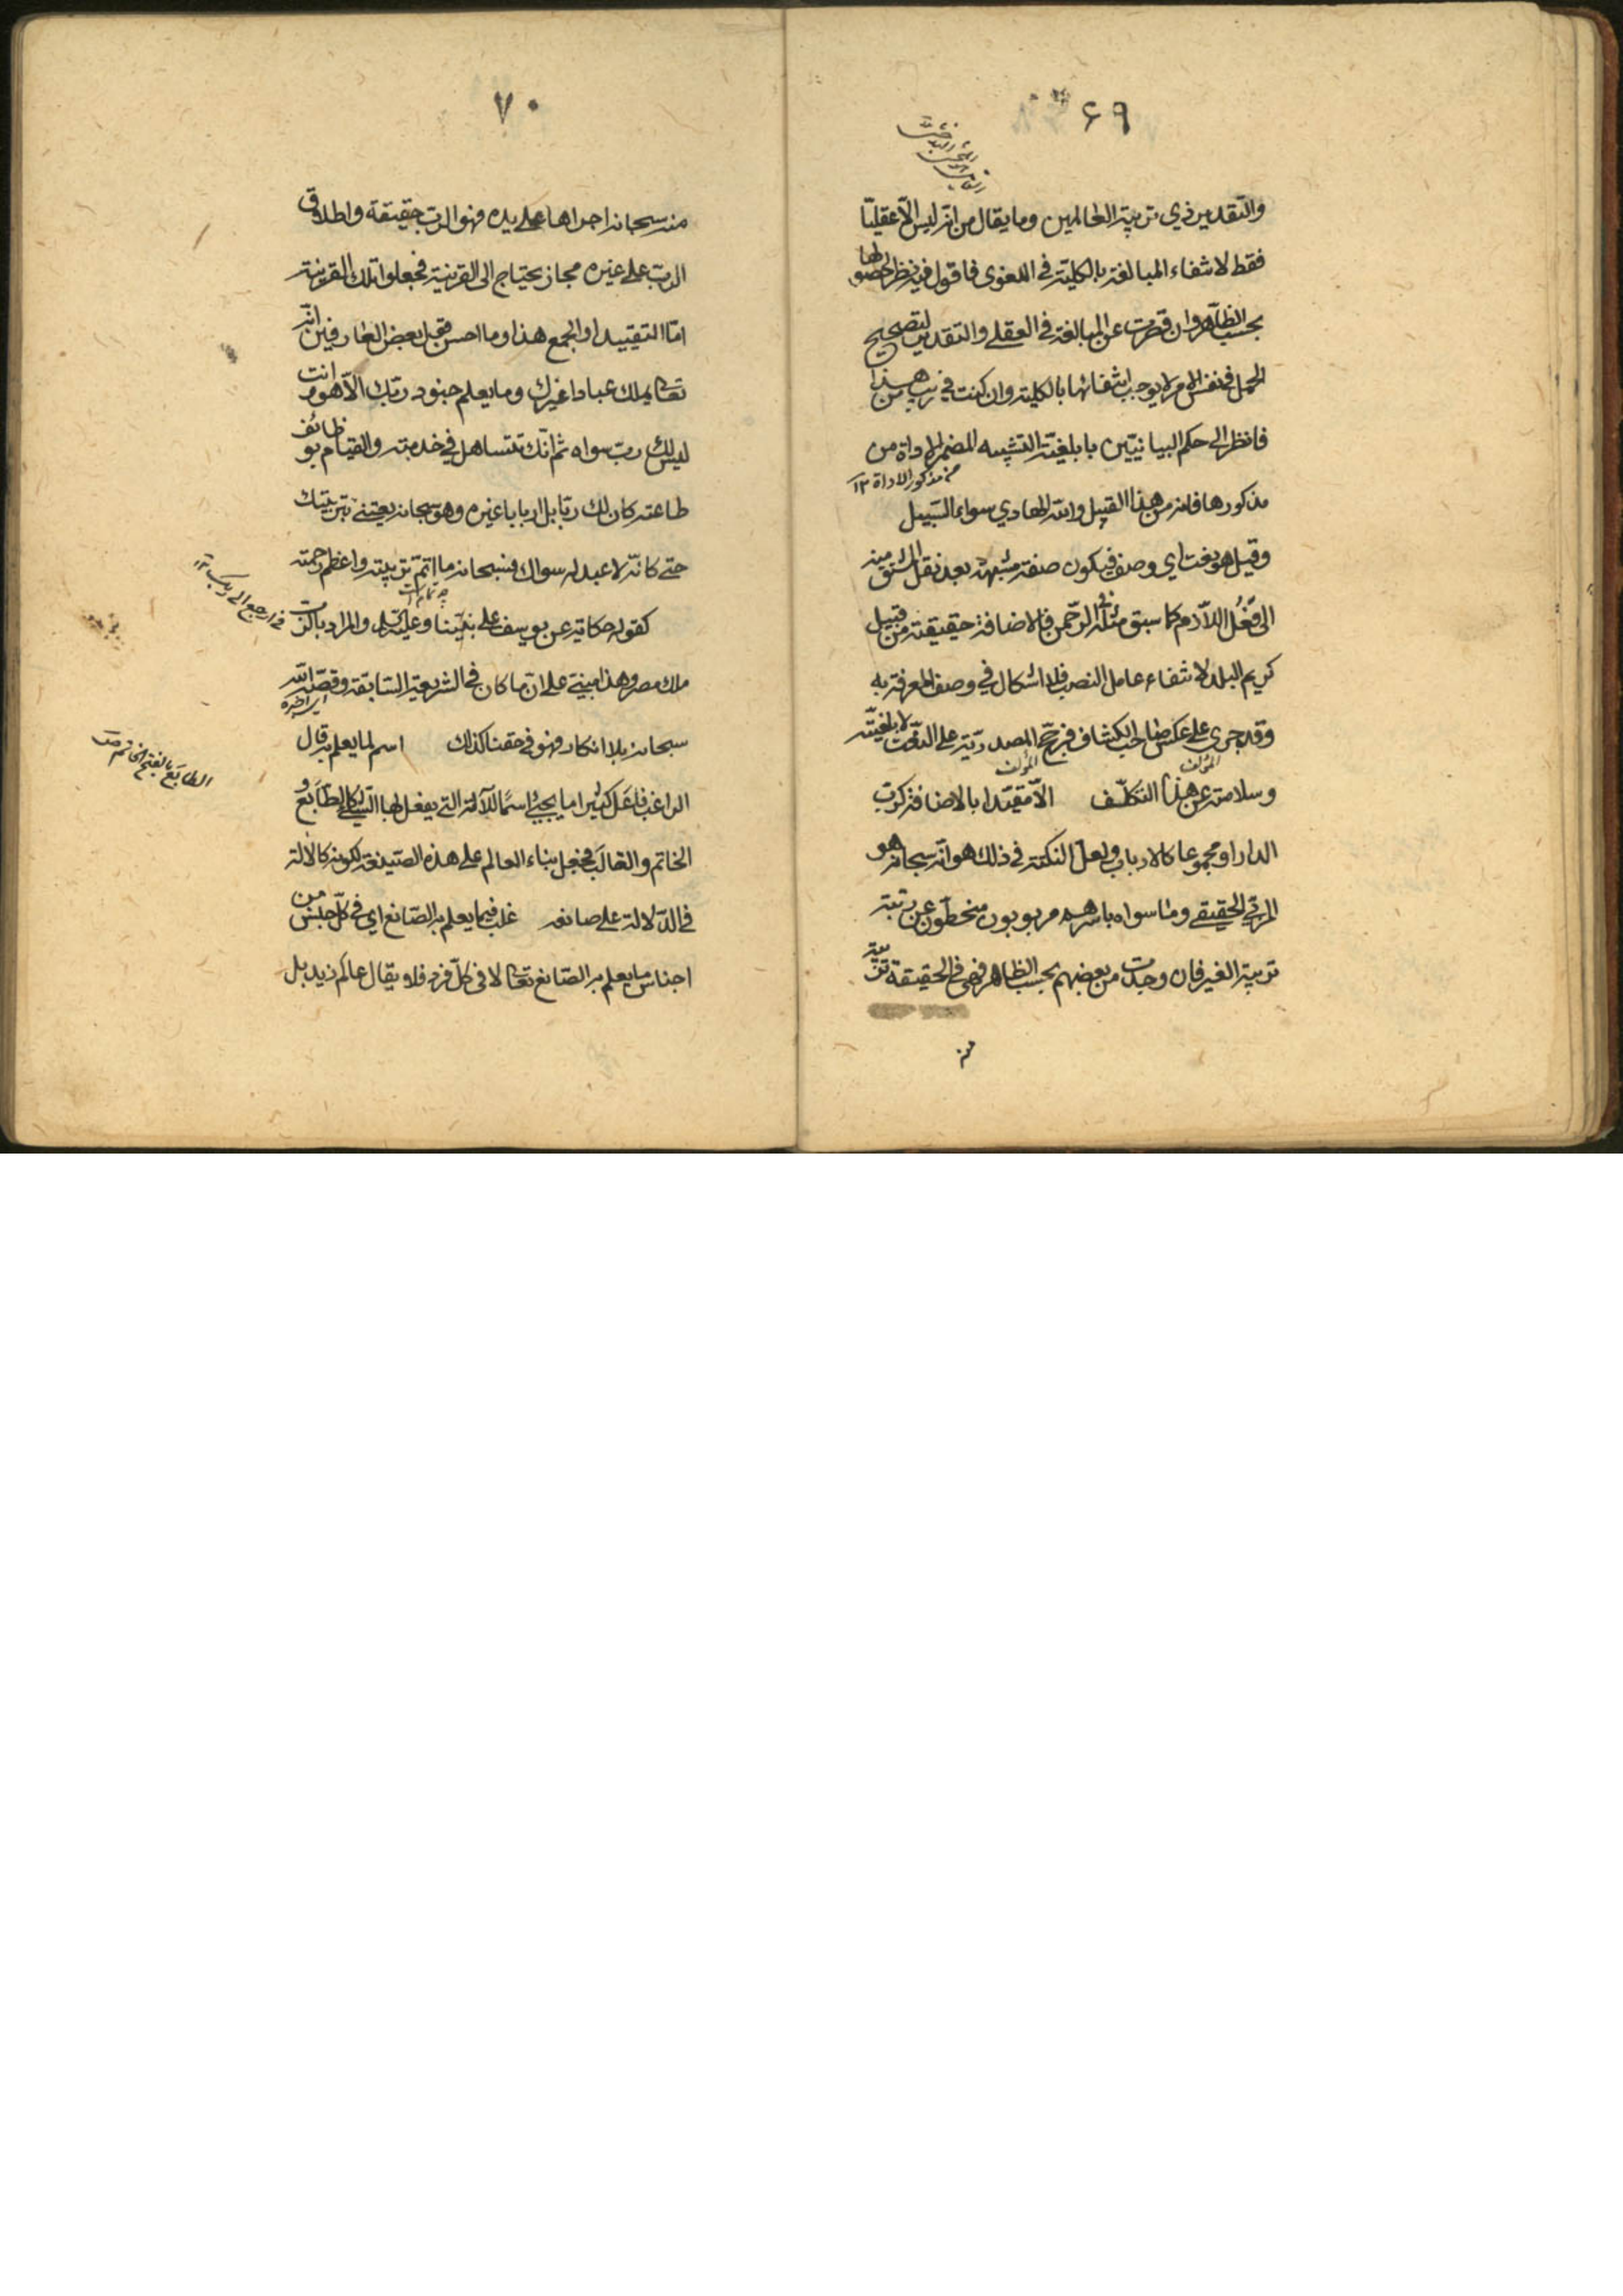 ٦٩
والتقدير ذي تربية العالمين وما يقال من انه ليس الا عقليّا
فقط لانتفاء المبالغة بالكليّة في اللغوى فاقول فيه نظر لحصولها
بحسب الظاهر وان قصرت عن المبالغة في العقلي والتقدير لتصحيح
الحمل في نفس الامر لا يوجب انتفائها بالكلية وان كنت في ريب من هذا
فانظر الى حكم البيانيّين بابلغيّة التشبيه المضمر الاداة من
مذكورها فانه من هذا القبيل والله الهادي سواء السبيل
من مذكور الاداة ١٢
وقيل هو نعت اي وصف فيكون صفة مشبهة بعد نقل المشتق منه
الى فَعُل اللازم كما سبق مثله في الرّحمن فالاضافة حقيقية من قبيل
كريم البلد لانتفاء عامل النصب فلا اشكال في وصف المعرفة به
وقد جرى على عكس صاحب الكشاف فرجّح المصدريّة على النعت لابلغيّته
وسلامته عن هذا التكلّف الّا مقيّدا بالاضافة كربّ
الدار او مجموعا كالارباب ولعل النكتة في ذلك هو انّه سبحانه هو
المربّي الحقيقي وما سواه باسرهم مربوبون منحطّون عن رتبة
تربية الغير فان وجدت من بعضهم بحسب الظاهر فهي في الحقيقة تربية
منه
٧٠
منه سبحانه اجراها على يده فهو الرب حقيقة واطلاق
الرب على غيره مجاز يحتاج الى القرينة فجعلوا تلك القرينة
امّا التقييد او الجمع هذا وما احسن قول بعض العارفين انّه
تعالى يملك عبادا غيرك وما يعلم جنود ربّك الّا هو وانت
ليس لك رب سواه ثم انّك تتساهل في خدمته والقيام بوظائف
طاعته كان لك ربّا بل اربابا غيره وهو سبحانه يعتني بتربيتك
حتى كانّه لا عبد له سواك فسبحانه ما اتمّ تربيته واعظم رحمته
كقوله حكاية عن يوسف على نبيّنا وعليه السلام والمراد بالرّب
في ارجع الى ربك ١٢
ملك مصر وهذا مبنيّ على انّ ما كان في الشريعة السّابقة وقصّه الله
سبحانه بلا انكار فهو في حقنا كذلك اسم لما يعلم به قال
الراغب فاعَل كثيرا ما يجيء اسمًا للآلة التي يفعل بها الشيء كالطابَع و
الطابَع بالفتح الخاتم
الخاتم والقالَب فجعل بناء العالم على هذه الصيغة لكونه كالآلة
في الدّلالة على صانعه غلب فيما يعلم به الصّانع اي في كلّ جنس من
اجناس ما يعلم به الصّانع تعالى لا في كلّ فرد فلا يقال عالَم زيد بل